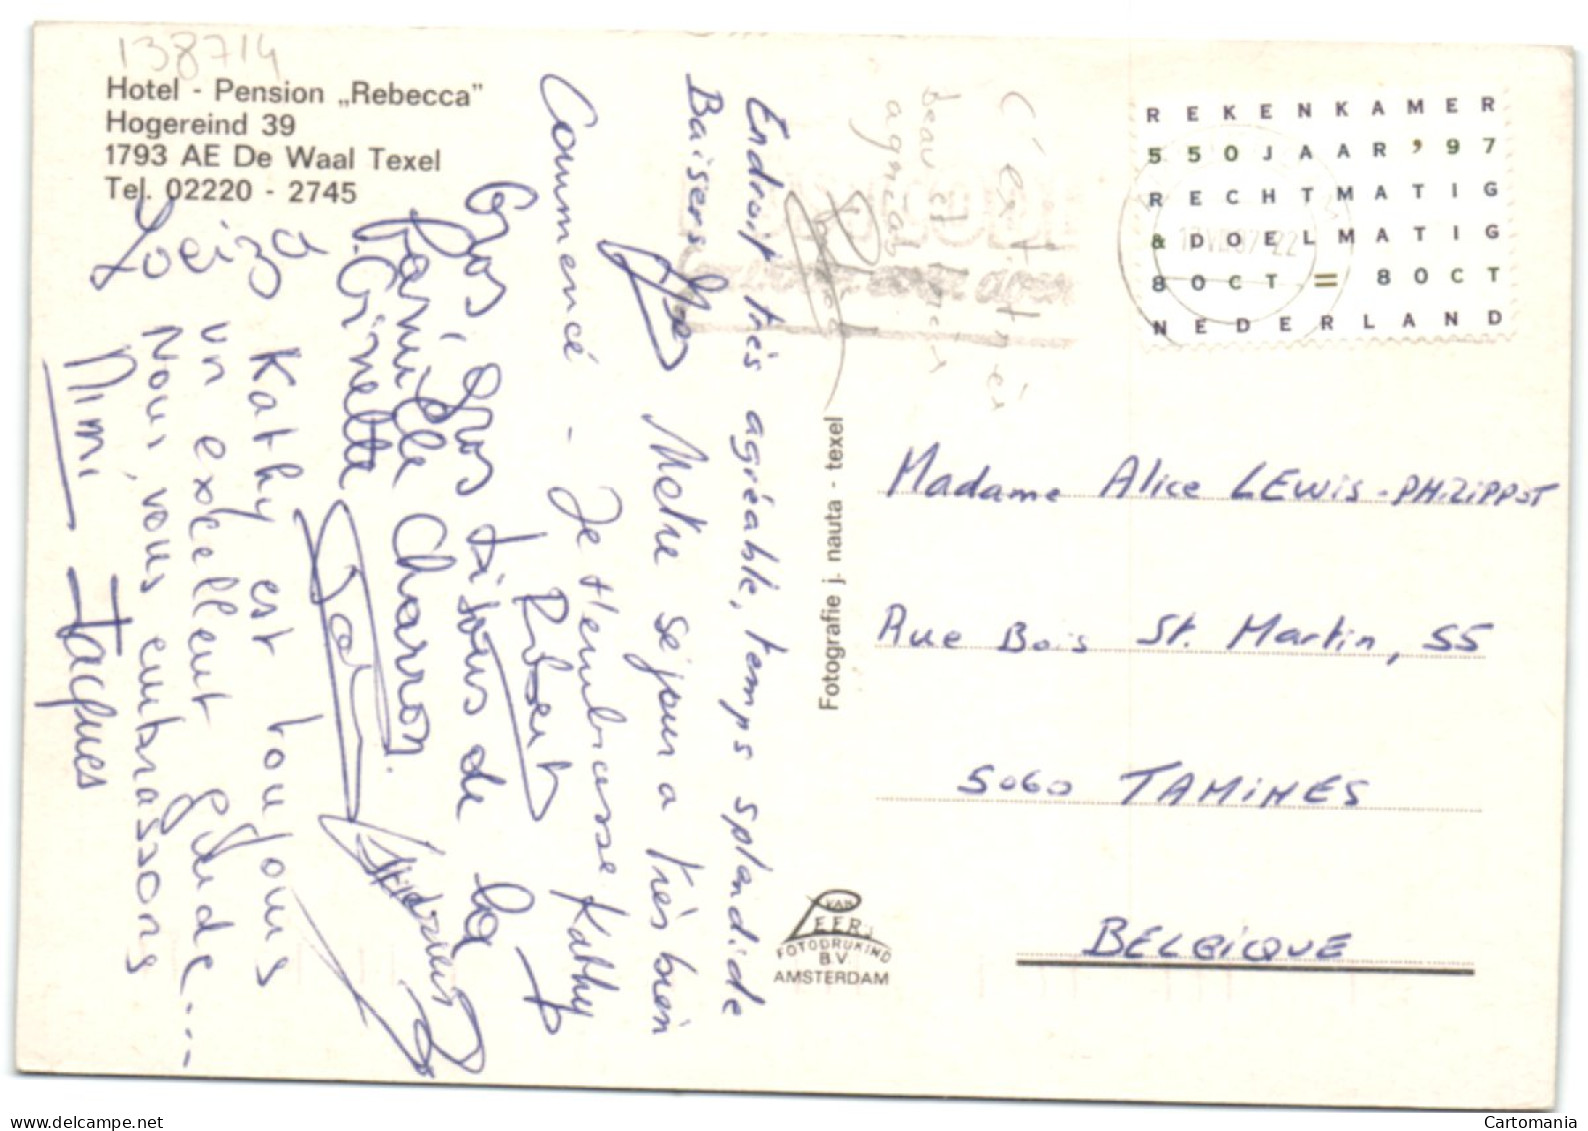 138714
Hotel - Pension „Rebecca”
Hogereind 39
1793 AE De Waal Texel
Tel. 02220 - 2745
REKENKAMER
550JAAR'97
RECHTMATIG
&DOELMATIG
80CT=80CT
NEDERLAND
C'est très
beau et
agréab
Endroit très agréable, temps splendide
Baisers
Notre séjour a très bien
Commencé - Je t'embrasse Kathy
Robert
Gros, gros bisous de la
famille Charron.
Ginette
Kathy est toujours
un excellent guide....
Nous vous embrassons
Mimi Jacques
Fotografie j. nauta - texel
Madame Alice LEWIS-PHILIPPOT
Rue Bois St. Martin, 55
5060 TAMINES
BELGIQUE
VAN
LEER'S
FOTODRUKIND
B.V.
AMSTERDAM
www.delcampe.net
Cartomania